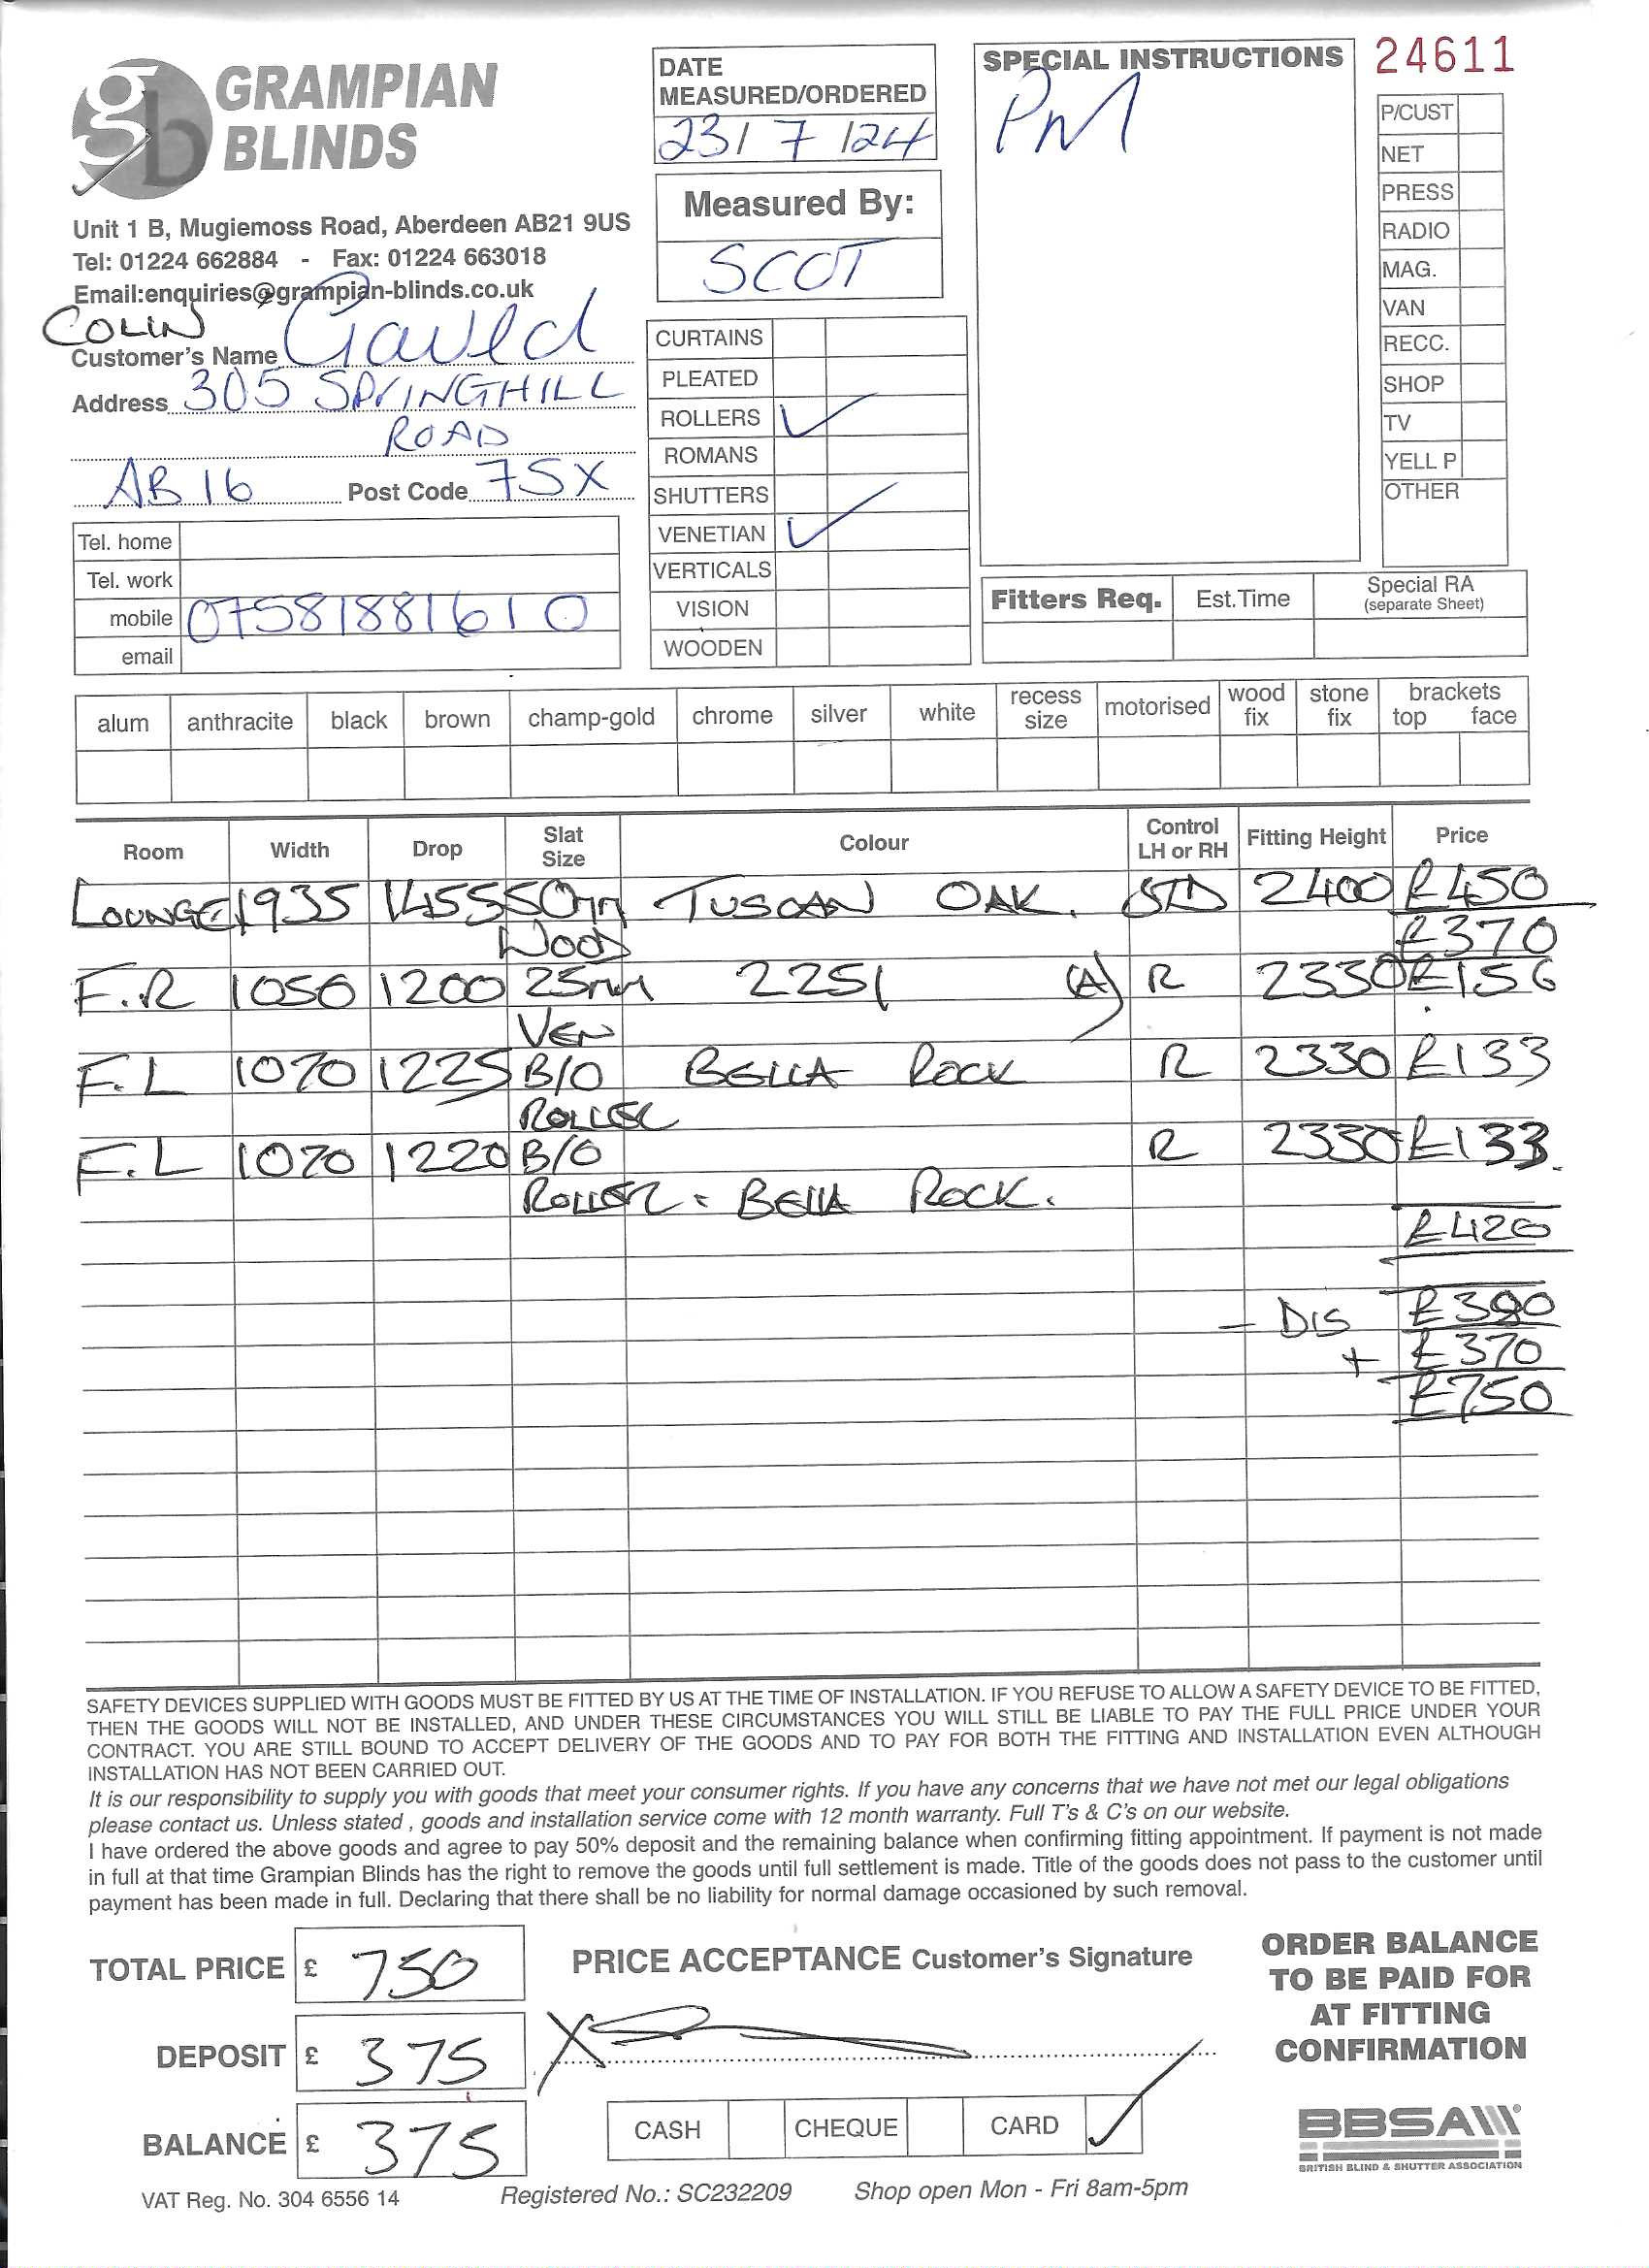 GRAMPIAN
BLINDS
Unit 1 B, Mugiemoss Road, Aberdeen AB21 9US
Tel: 01224 662884 - Fax: 01224 663018
Email:enquiries@grampian-blinds.co.uk
COLIN
Customer's Name Gauld
Address 305 SPRINGHILL
ROAD
AB16 Post Code 7SX
Tel. home
Tel. work
mobile 07581881610
email
DATE
MEASURED/ORDERED
23/7/24
Measured By:
SCOT
CURTAINS
PLEATED
ROLLERS ✓
ROMANS
SHUTTERS
VENETIAN ✓
VERTICALS
VISION
WOODEN
SPECIAL INSTRUCTIONS
PM
24611
P/CUST
NET
PRESS
RADIO
MAG.
VAN
RECC.
SHOP
TV
YELL P
OTHER
Fitters Req. Est.Time Special RA
(separate Sheet)
alum anthracite black brown champ-gold chrome silver white recess size motorised wood fix stone fix brackets top face
Room Width Drop Slat Size Colour Control LH or RH Fitting Height Price
LOUNGE 1935 1455 50mm TUSCAN OAK. STD 2400 £450
WOOD £370
F.R 1050 1200 25mm 2251 (A) R 2330 £156
VEN
F.L 1070 1225 B/O BELLA ROCK R 2330 £133
ROLLER
F.L 1070 1220 B/O R 2330 £133
ROLLER - BELLA ROCK.
£420
- DIS £380
+ £370
£750
SAFETY DEVICES SUPPLIED WITH GOODS MUST BE FITTED BY US AT THE TIME OF INSTALLATION. IF YOU REFUSE TO ALLOW A SAFETY DEVICE TO BE FITTED,
THEN THE GOODS WILL NOT BE INSTALLED, AND UNDER THESE CIRCUMSTANCES YOU WILL STILL BE LIABLE TO PAY THE FULL PRICE UNDER YOUR
CONTRACT. YOU ARE STILL BOUND TO ACCEPT DELIVERY OF THE GOODS AND TO PAY FOR BOTH THE FITTING AND INSTALLATION EVEN ALTHOUGH
INSTALLATION HAS NOT BEEN CARRIED OUT.
It is our responsibility to supply you with goods that meet your consumer rights. If you have any concerns that we have not met our legal obligations
please contact us. Unless stated , goods and installation service come with 12 month warranty. Full T's & C's on our website.
I have ordered the above goods and agree to pay 50% deposit and the remaining balance when confirming fitting appointment. If payment is not made
in full at that time Grampian Blinds has the right to remove the goods until full settlement is made. Title of the goods does not pass to the customer until
payment has been made in full. Declaring that there shall be no liability for normal damage occasioned by such removal.
TOTAL PRICE £ 750
DEPOSIT £ 375
BALANCE £ 375
PRICE ACCEPTANCE Customer's Signature
X
CASH CHEQUE CARD ✓
ORDER BALANCE
TO BE PAID FOR
AT FITTING
CONFIRMATION
BBSA
BRITISH BLIND & SHUTTER ASSOCIATION
VAT Reg. No. 304 6556 14 Registered No.: SC232209 Shop open Mon - Fri 8am-5pm